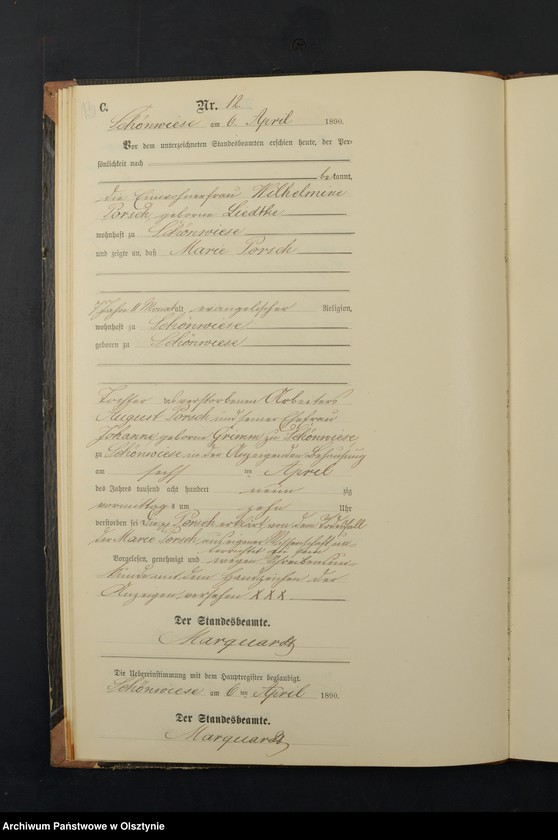 C.
Nr. 12
Schönwiese am 6. April 1890.
Vor dem unterzeichneten Standesbeamten erschien heute, der Per-
sönlichkeit nach
bekannt,
die Einwohnerfrau Wilhelmine
Porsch geborene Liedtke
wohnhaft zu Schönwiese
und zeigte an, daß Marie Porsch
7 Jahre 11 Monat alt, evangelischer Religion,
wohnhaft zu Schönwiese
geboren zu Schönwiese
Tochter verstorbenen Arbeiters
August Porsch und seiner Ehefrau
Johanne geborene Grimm zu Schönwiese
zu Schönwiese in der Anzeigenden Behausung
am sechsten April
des Jahres tausend acht hundert neunzig
vormittags um zehn Uhr
verstorben sei Porsch erklärt von dem Todesfall
der Marie Porsch aus eigener Wissenschaft un-
terrichtet zu sein
Vorgelesen, genehmigt und wegen Schreibensun-
kunde mit dem Handzeichen der
Anzeigen versehen X X X
Der Standesbeamte.
Marquardt
Die Uebereinstimmung mit dem Hauptregister beglaubigt.
Schönwiese am 6ten April 1890.
Der Standesbeamte.
Marquardt
Archiwum Państwowe w Olsztynie